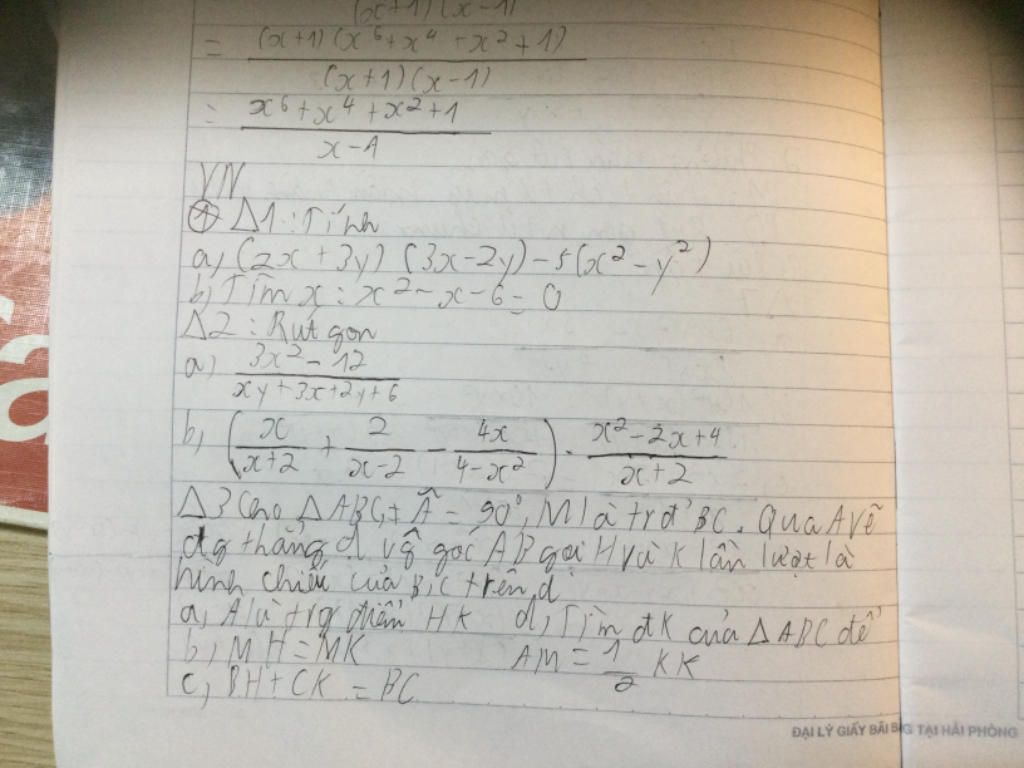 (x+1)(x-1)
= (x+1)(x⁶+x⁴+x²+1)
(x+1)(x-1)
= x⁶+x⁴+x²+1
x-1
VN
Δ1: Tính
a, (2x+3y)(3x-2y)-5(x²-y²)
b, Tìm x: x²-x-6=0
Δ2: Rút gọn
a) 3x²-12
xy+3x+2y+6
b, (x/(x+2) + 2/(x-2) - 4x/(4-x²)) · (x²-2x+4)/(x+2)
Δ3 Cho ΔABC, Â = 90°, M là trđ' BC. Qua A vẽ
đg thẳng d vg góc AB gọi H và K lần lượt là
hình chiếu của B, C trên d
a, A là trg điểm HK d, Tìm đK của ΔABC để
b, MH=MK AM = 1/2 KK
c, BH+CK = BC
ĐẠI LÝ GIẤY BÃI BẰNG TẠI HẢI PHÒNG